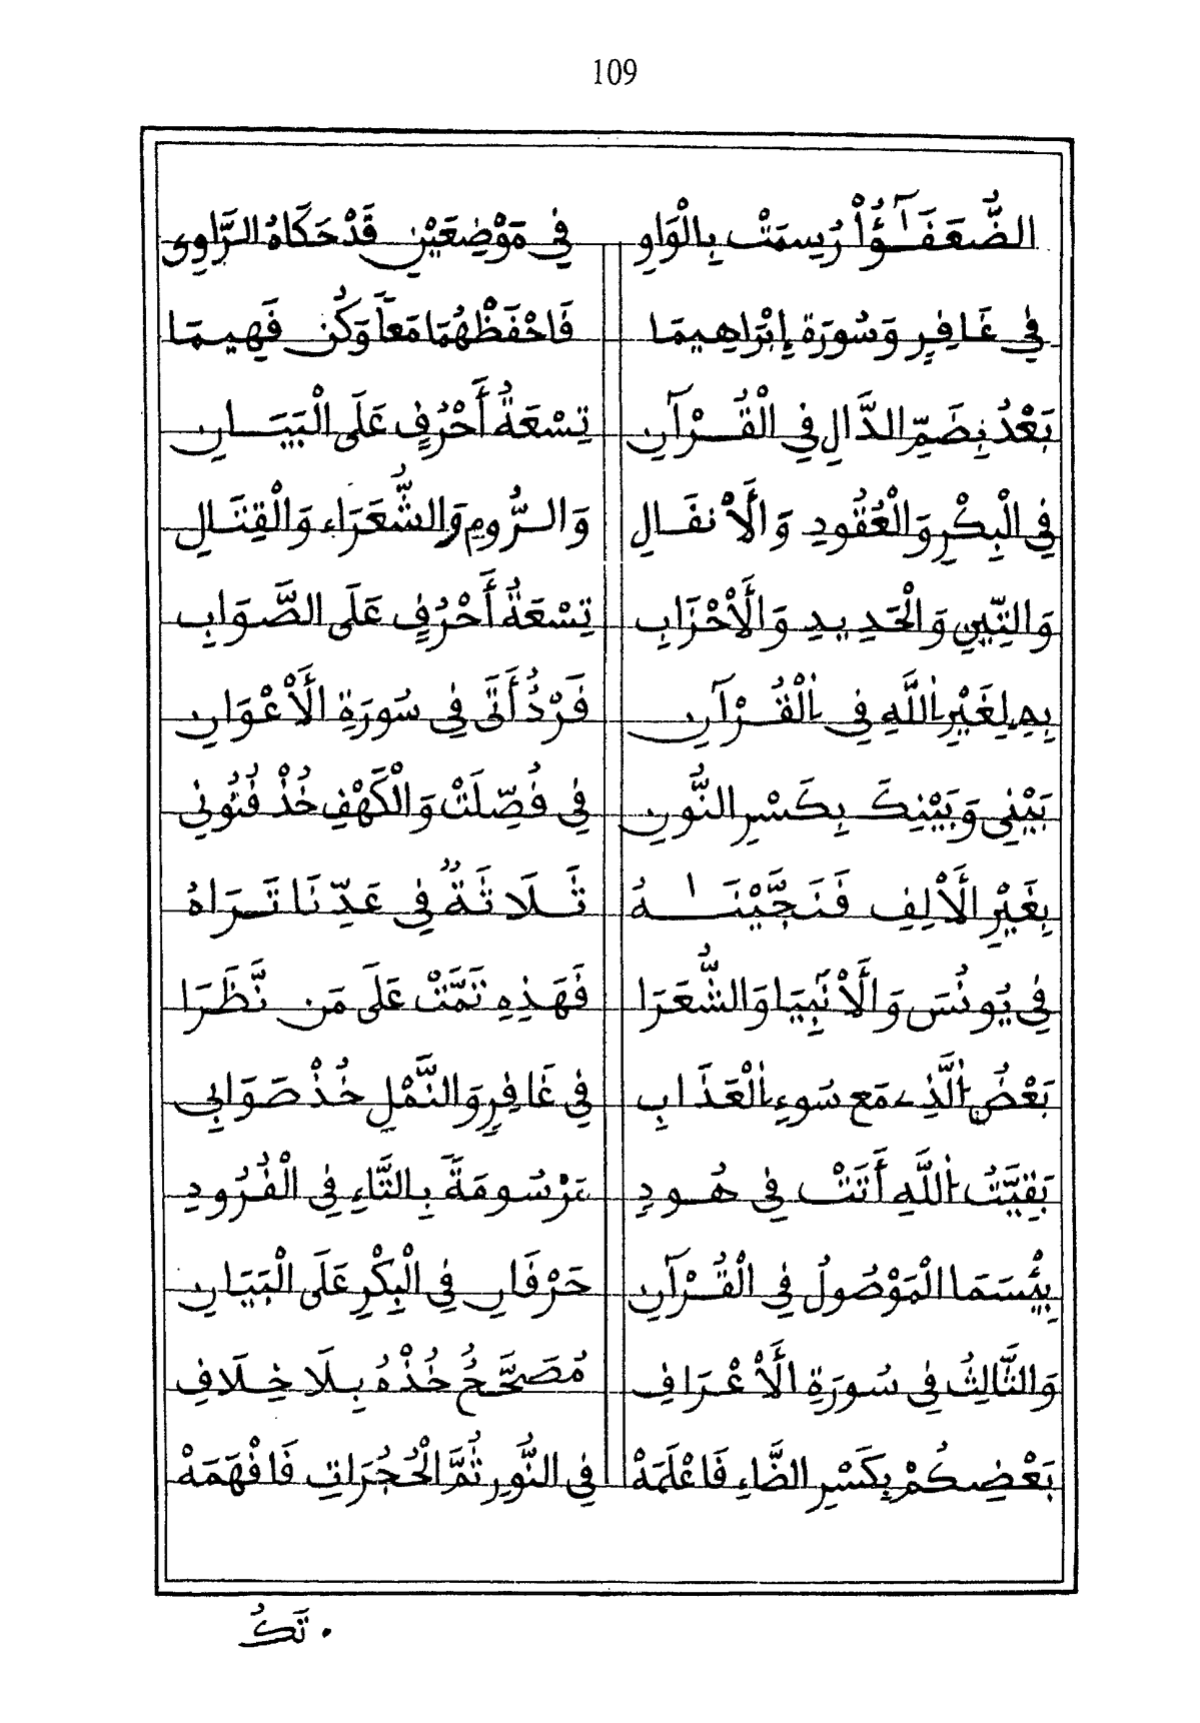 109
الضُّعَفَـٰٓؤُاْ رُسِمَتْ بِالْوَاوِ فِي مَوْضِعَيْنِ قَدْ حَكَاهُ الرَّاوِي
فِي غَافِرٍ وَسُورَةِ إِبْرَاهِيمَا فَاحْفَظْهُمَا مَعاً وَكُن فَهِيمَا
بَعْدُ بِضَمِّ الدَّالِ فِي الْقُرْآنِ تِسْعَةُ أَحْرُفٍ عَلَى الْبَيَانِ
فِي الْبِكْرِ وَالْعُقُودِ وَالْأَنفَالِ وَالرُّومِ وَالشُّعَرَاءِ وَالْقِتَالِ
وَالتِّينِ وَالْحَدِيدِ وَالْأَحْزَابِ تِسْعَةُ أَحْرُفٍ عَلَى الصَّوَابِ
بِهِ لِغَيْرِ اللَّهِ فِي الْقُرْآنِ فَرْدٌ أَتَى فِي سُورَةِ الْأَعْوَانِ
بَيْنِي وَبَيْنِكَ بِكَسْرِ النُّونِ فِي فُصِّلَتْ وَالْكَهْفِ خُذْ فُتُونِي
بِغَيْرِ الْأَلِفِ فَنَجَّيْنَـٰهُ ثَلَاثَةٌ فِي عَدِّنَا تَرَاهُ
فِي يُونُسَ وَالْأَنْبِيَا وَالشُّعَرَا فَهَذِهِ تَمَّتْ عَلَى مَن نَّظَرَا
بَعْضُ الَّذِي مَع سُوءِ الْعَذَابِ فِي غَافِرٍ وَالنَّمْلِ خُذْ صَوَابِي
بَقِيَّتُ اللَّهِ أَتَتْ فِي هُودِ مَرْسُومَةً بِالتَّاءِ فِي الْفُرُودِ
بِئْسَمَا الْمَوْصُولُ فِي الْقُرْآنِ حَرْفَانِ فِي الْبِكْرِ عَلَى الْبَيَانِ
وَالثَّالِثُ فِي سُورَةِ الْأَعْرَافِ مُصَحَّحٌ خُذْهُ بِلَا خِلَافِ
بَعْضِكُمْ بِكَسْرِ الضَّاءِ فَاعْلَمَهْ فِي النُّورِ ثُمَّ الْحُجُرَاتِ فَافْهَمَهْ
تَكُ